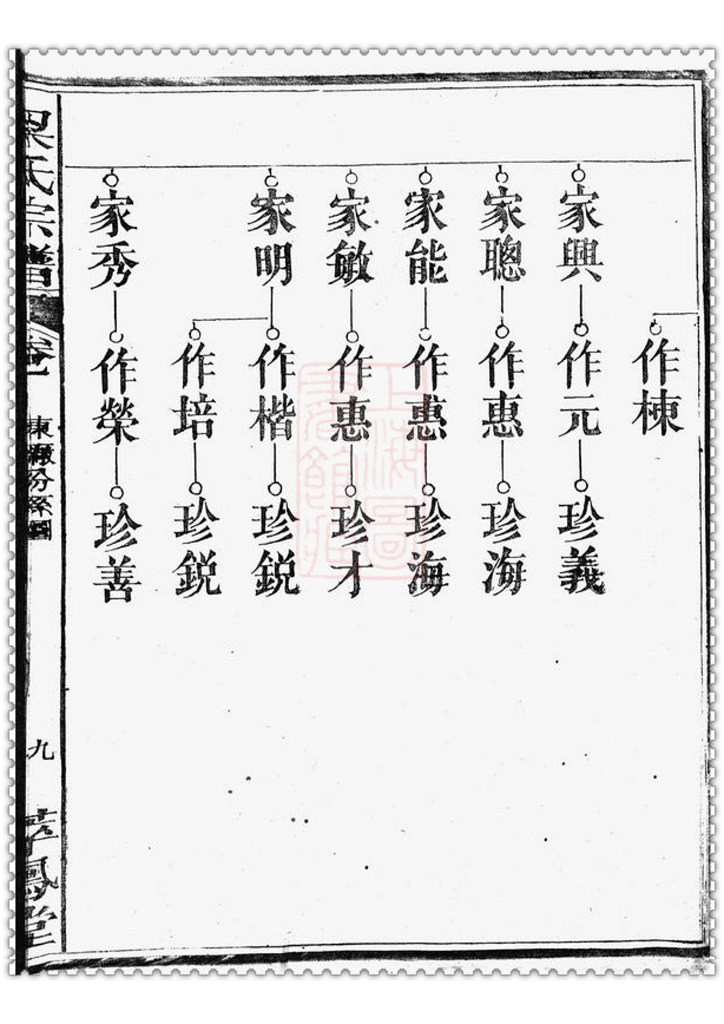 作棟
家興 作元 珍義
家聰 作惠 珍海
家能 作惠 珍海
家敏 作惠 珍才
家明 作楷 珍銳
作培 珍銳
家秀 作榮 珍善
氏宗譜
卷一
東
分系圖
九
鳳堂